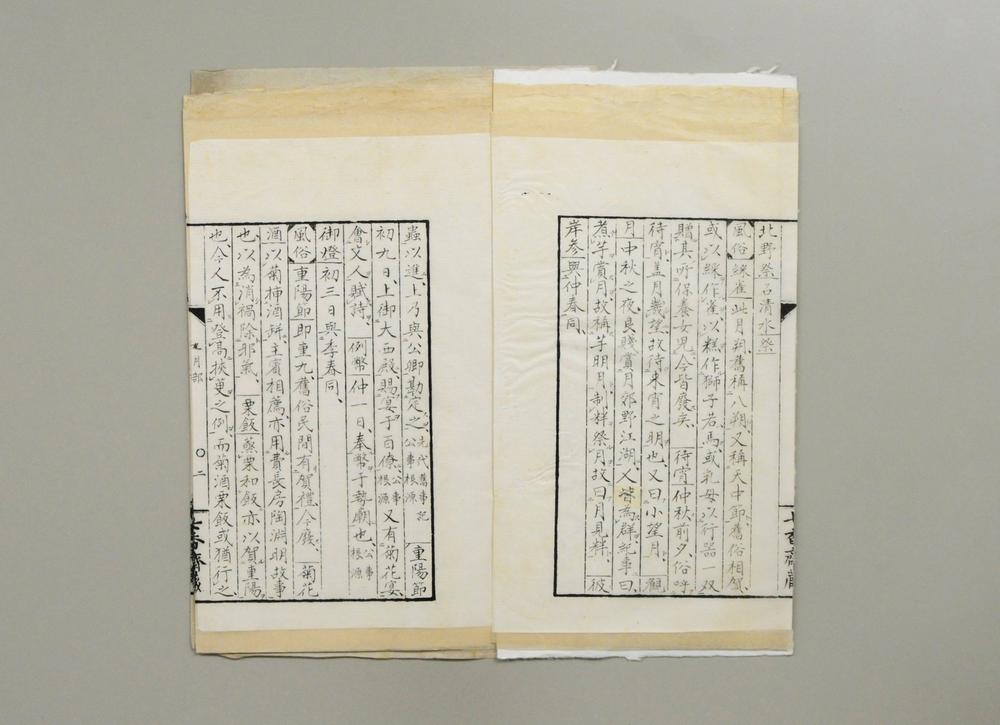 北野祭石清水祭
風俗 綵雀 此月朔舊稱八朔又稱天中節舊俗相賀
或以綵作雀以糕作獅子若馬或乳母以行器一双
贈其所保養女児今皆廢矣 待宵 仲秋前夕俗呼
待宵蓋月幾望故待来宵之明也又曰小望月 觀
月 中秋之夜良賤賞月郊野江湖人皆為群紀事曰
煮芋賞月故稱芋明月制餅祭月故曰月見餅 彼
岸叅 與仲春同
七香齋藏
蟲以進上乃與公卿勘定之 先代舊事記 公事根源 重陽節
初九日上御大西殿賜宴于百僚 公事根源 又有菊花宴
會文人賦詩 例幣 仲一日奉幣于勢廟也 公事根源
御燈 初三日與季春同
風俗 重陽節即重九舊俗民間有賀禮今廢 菊花
酒 以菊挿酒缾主賓相薦亦用費長房陶淵明故事
也以為消禍除邪氣 栗飯 蒸栗和飯亦以賀重陽
也今人不用登高挾茰之例而菊酒栗飯或猶行之
九月部
〇二
七香齋藏